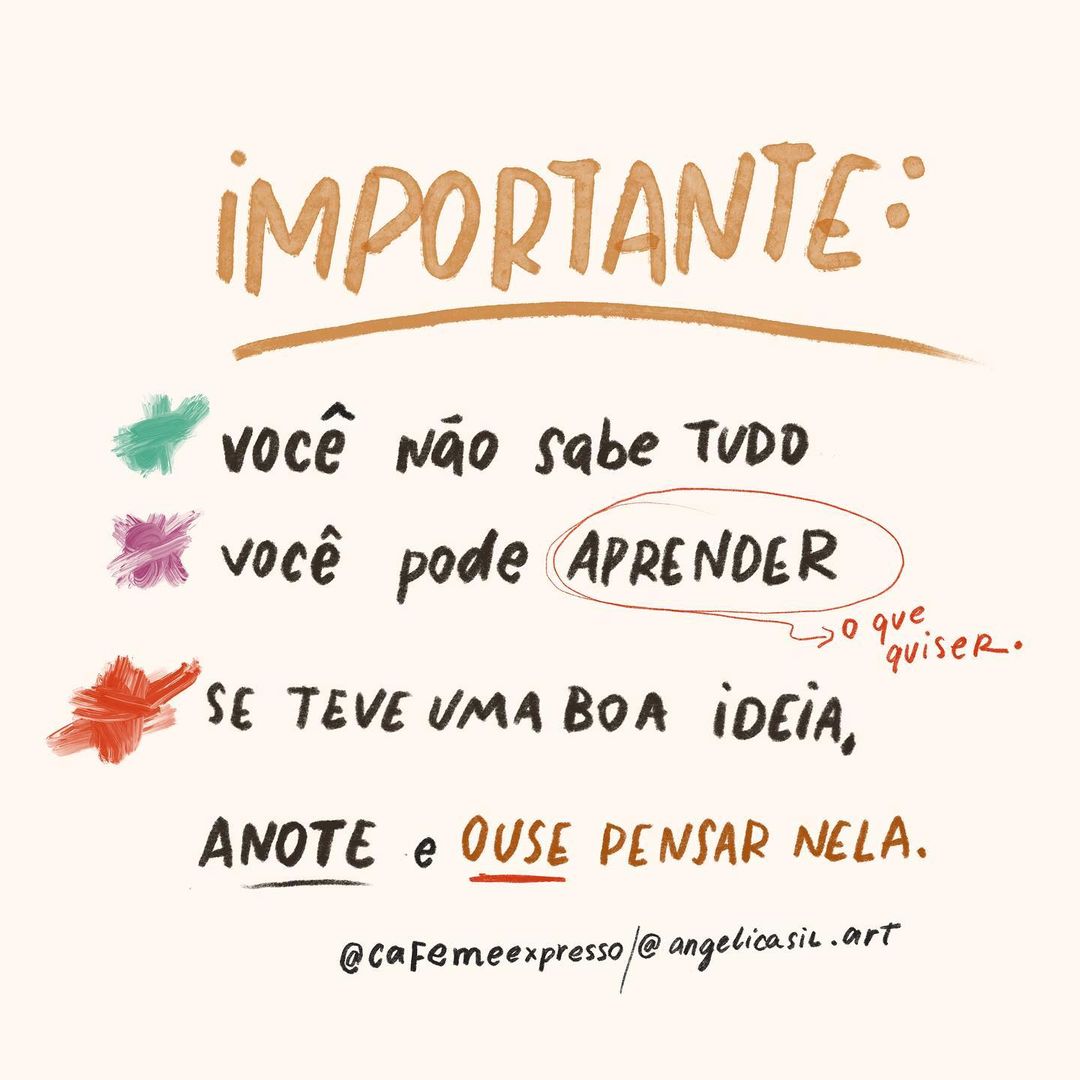 iMPORTANTE:
VOCÊ NÃO Sabe TUDO
você pode APRENDER
o que
quiser.
SE TEVE UMA BOA iDEiA,
ANOTE e OUSE PENSAR NELA.
@cafemeexpresso/@angelicasil.art